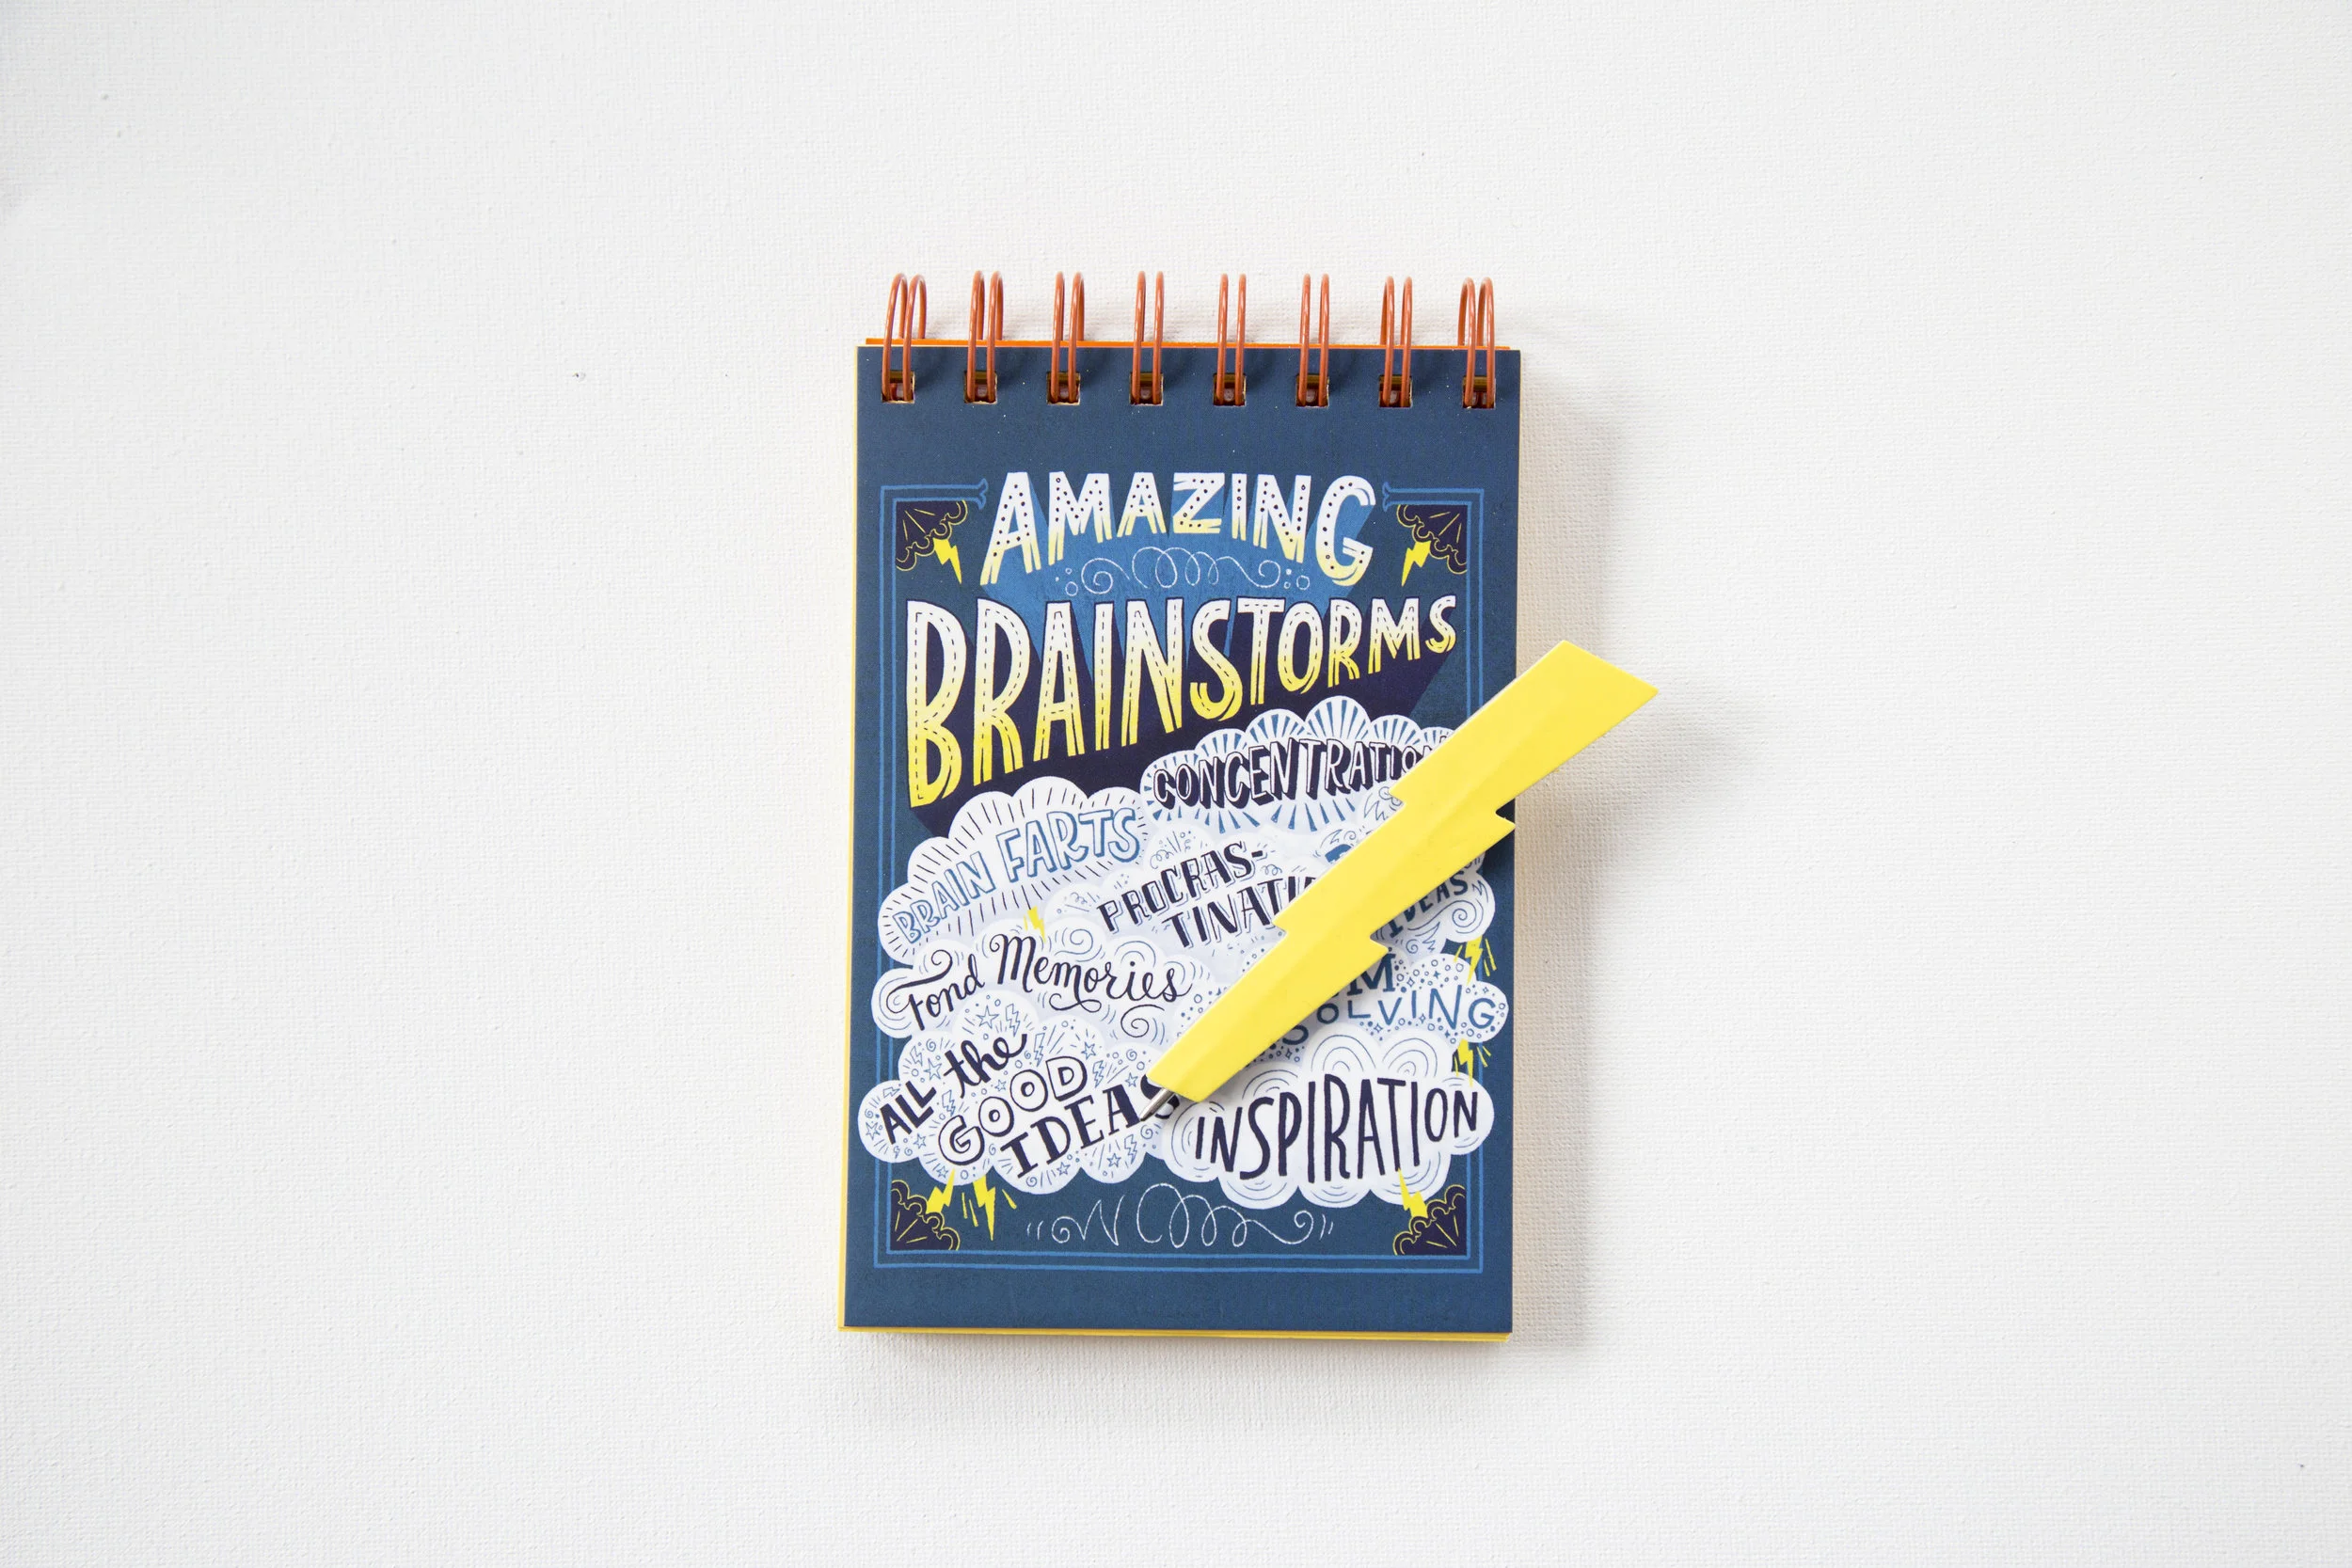 AMAZING
BRAINSTORMS
CONCENTRATION
BRAIN FARTS
PROCRAS-
TINATI
IDEAS
Fond Memories
M
SOLVING
ALL the
GOOD
IDEAS
INSPIRATION